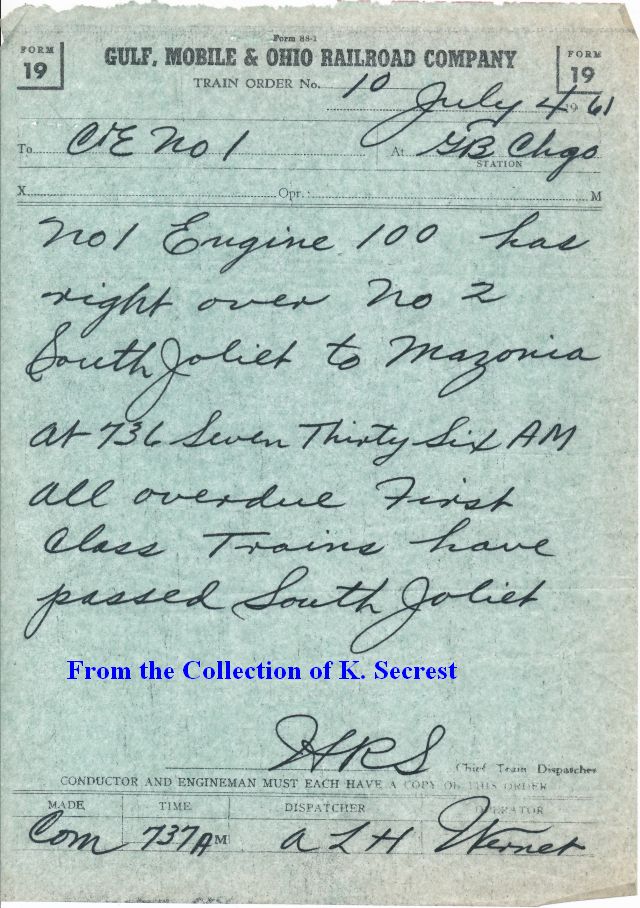 Form 88-1
FORM 19
GULF, MOBILE & OHIO RAILROAD COMPANY
FORM 19
TRAIN ORDER No. 10
July 4 1961
To C&E No 1 At GB Chgo
STATION
X Opr.: M
No 1 Engine 100 has
right over No 2
South Joliet to Mazonia
at 736 Seven Thirty Six AM
all overdue First
Class Trains have
passed South Joliet
From the Collection of K. Secrest
HRS Chief Train Dispatcher
CONDUCTOR AND ENGINEMAN MUST EACH HAVE A COPY OF THIS ORDER
MADE TIME DISPATCHER OPERATOR
Com 737A M A L H Wernet